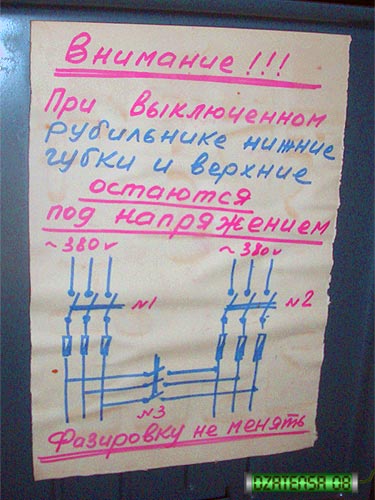 Внимание!!!
При выключенном
рубильнике нижние
губки и верхние
остаются
под напряжением
~380v ~380v
№1 №2
№3
Фазировку не менять
DZATEOSA 08